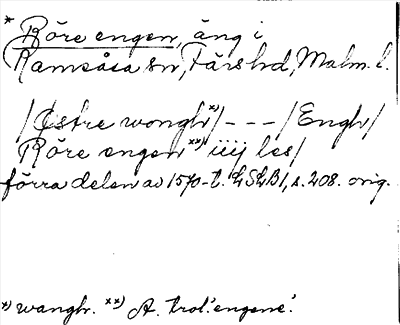 * Röre engen, äng i
Ramsåsa sn, Färs hd, Malm. l.
/Östre wongh x)/ - - - / Engh/
Röre engen xx) iiij les/
förra delen av 1570-t. LSLB1, s. 208. orig.
x) wangh. xx) A. trol. 'engene'.